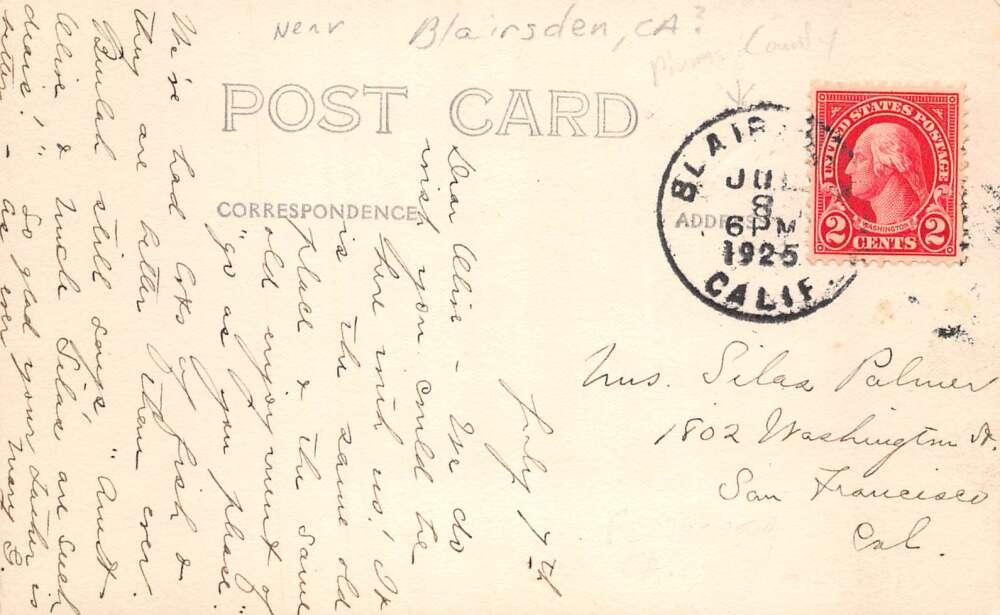 Near Blairsden, CA?
Plumas County
POST CARD
CORRESPONDENCE
ADDRESS
BLAIR
JUL
8
6 PM
1925
CALIF.
UNITED STATES POSTAGE
WASHINGTON
2 CENTS 2
July 7th
Dear Olive - We do
wish you could be
here with us! It
is the same old
place & the same
old enjoyment of
"go as you please."
We've had lots of fish &
they are better than ever.
Beulah still says, "Aunt
Olive & Uncle Silas are such
dears!" So glad your father is
better - As ever Mary E.
Mrs. Silas Palmer
1802 Washington St.
San Francisco
Cal.